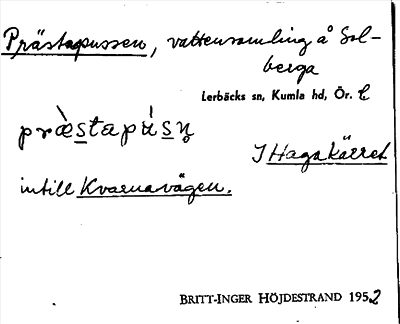 Prästapussen, vattensamling å Sol-
berga
Lerbäcks sn, Kumla hd, Ör. l.
præ̀stapússn̥
I Hagakärret
intill Kvarnavägen.
BRITT-INGER HÖJDESTRAND 1952